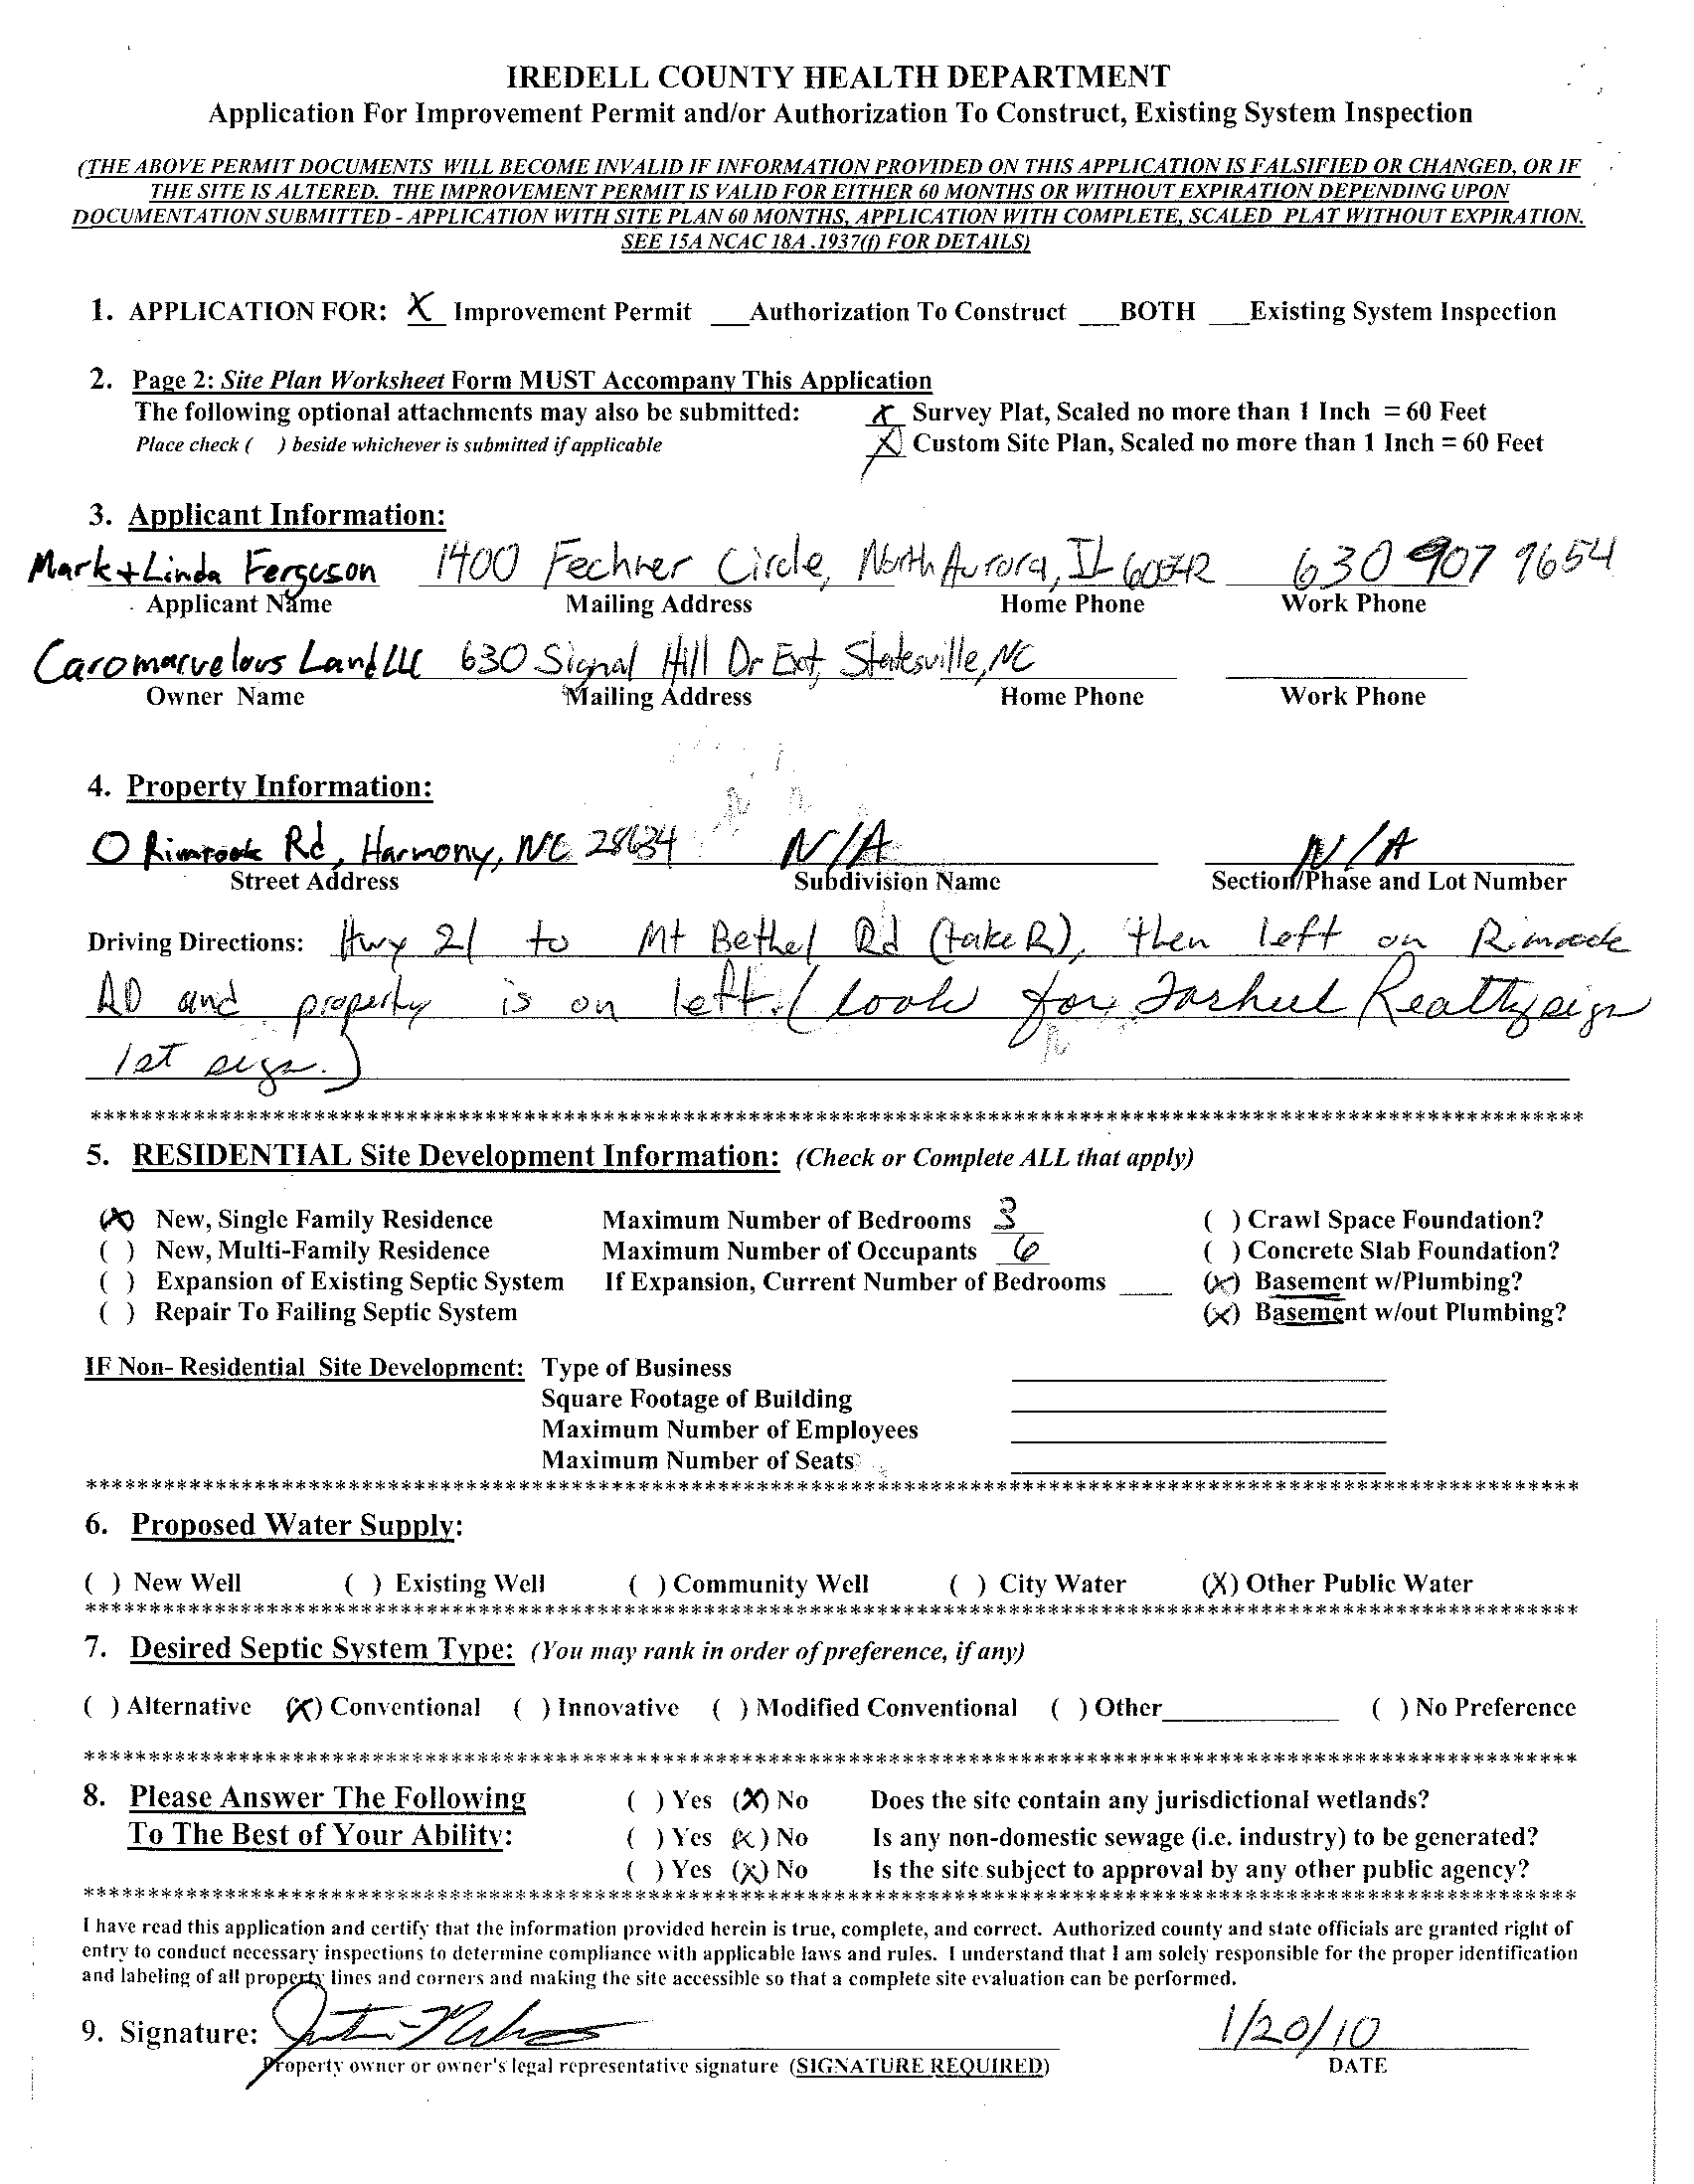 IREDELL COUNTY HEALTH DEPARTMENT
Application For Improvement Permit and/or Authorization To Construct, Existing System Inspection
(THE ABOVE PERMIT DOCUMENTS WILL BECOME INVALID IF INFORMATION PROVIDED ON THIS APPLICATION IS FALSIFIED OR CHANGED, OR IF
THE SITE IS ALTERED. THE IMPROVEMENT PERMIT IS VALID FOR EITHER 60 MONTHS OR WITHOUT EXPIRATION DEPENDING UPON
DOCUMENTATION SUBMITTED - APPLICATION WITH SITE PLAN 60 MONTHS, APPLICATION WITH COMPLETE, SCALED PLAT WITHOUT EXPIRATION.
SEE 15A NCAC 18A .1937(f) FOR DETAILS)
1. APPLICATION FOR: X Improvement Permit ___Authorization To Construct ___BOTH ___Existing System Inspection
2. Page 2: Site Plan Worksheet Form MUST Accompany This Application
The following optional attachments may also be submitted: X Survey Plat, Scaled no more than 1 Inch = 60 Feet
Place check ( ) beside whichever is submitted if applicable X Custom Site Plan, Scaled no more than 1 Inch = 60 Feet
3. Applicant Information:
Mark + Linda Ferguson 1400 Fechner Circle, North Aurora, IL 630 907 9654
Applicant Name Mailing Address Home Phone Work Phone
Caromarvelous Land LLC 630 Signal Hill Dr Ext, Statesville, NC
Owner Name Mailing Address Home Phone Work Phone
4. Property Information:
0 Rimrock Rd, Harmony, NC 28634 N/A N/A
Street Address Subdivision Name Section/Phase and Lot Number
Driving Directions: Hwy 21 to Mt Bethel Rd (take R), then left on Rimrock
RD and property is on left. (look for Tarheel Realty sign
1st sign.)
*****
5. RESIDENTIAL Site Development Information: (Check or Complete ALL that apply)
(X) New, Single Family Residence Maximum Number of Bedrooms 3 ( ) Crawl Space Foundation?
( ) New, Multi-Family Residence Maximum Number of Occupants 6 ( ) Concrete Slab Foundation?
( ) Expansion of Existing Septic System If Expansion, Current Number of Bedrooms ____ (X) Basement w/Plumbing?
( ) Repair To Failing Septic System (X) Basement w/out Plumbing?
IF Non- Residential Site Development: Type of Business
Square Footage of Building
Maximum Number of Employees
Maximum Number of Seats
*****
6. Proposed Water Supply:
( ) New Well ( ) Existing Well ( ) Community Well ( ) City Water (X) Other Public Water
*****
7. Desired Septic System Type: (You may rank in order of preference, if any)
( ) Alternative (X) Conventional ( ) Innovative ( ) Modified Conventional ( ) Other____ ( ) No Preference
*****
8. Please Answer The Following ( ) Yes (X) No Does the site contain any jurisdictional wetlands?
To The Best of Your Ability: ( ) Yes (X) No Is any non-domestic sewage (i.e. industry) to be generated?
( ) Yes (X) No Is the site subject to approval by any other public agency?
*****
I have read this application and certify that the information provided herein is true, complete, and correct. Authorized county and state officials are granted right of
entry to conduct necessary inspections to determine compliance with applicable laws and rules. I understand that I am solely responsible for the proper identification
and labeling of all property lines and corners and making the site accessible so that a complete site evaluation can be performed.
9. Signature: 1/20/10
Property owner or owner's legal representative signature (SIGNATURE REQUIRED) DATE